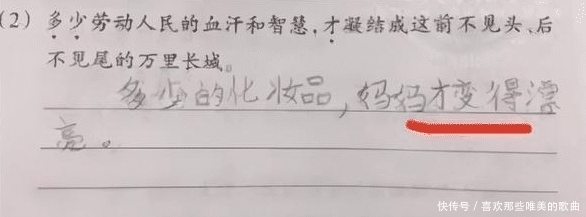 (2) 多少劳动人民的血汗和智慧,才凝结成这前不见头、后
不见尾的万里长城。
多少的化妆品,妈妈才变得漂
亮。
快传号/喜欢那些唯美的歌曲